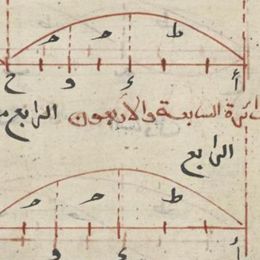 ط ح ح
أ ء و ح
ائرة السابعة والاربعون الرابع م
الرابع
ط ح ح
أ ء و